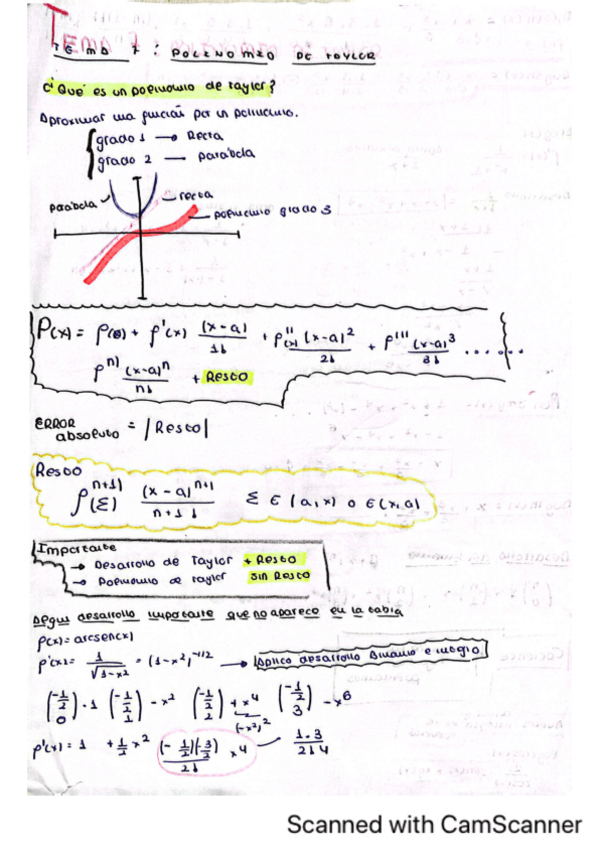 TEMA 7: POLINOMIO DE TAYLOR
¿Qué es un polinomio de Taylor?
Aproximar una función por un polinomio.
grado 1 → Recta
grado 2 → parábola
parábola
recta
polinomio grado 3
P(x) = f(a) + f'(x) (x-a)/1! + f''(x) (x-a)²/2! + f''' (x-a)³/3! ......
f^n) (x-a)^n/n! + Resto
ERROR absoluto = |Resto|
Resto
f^(n+1)(ε) (x-a)^(n+1)/n+1! ε ∈ (a,x) o ∈ (x,a)
Importante
→ Desarrollo de Taylor + Resto
→ Polinomio de Taylor sin Resto
Algún desarrollo importante que no aparece en la tabla
f(x) = arcsen(x)
f'(x) = 1/√1-x² = (1-x²)^-1/2 → Aplico desarrollo Binomio e integro
(-1/2 0) · 1 (-1/2 1) - x² (-1/2 2) + x⁴ (-1/2 3) - x⁶
(-x²)²
f'(x) = 1 + 1/2 x² (-1/2)(-3/2)/2! x⁴ 1·3/2!4
Scanned with CamScanner